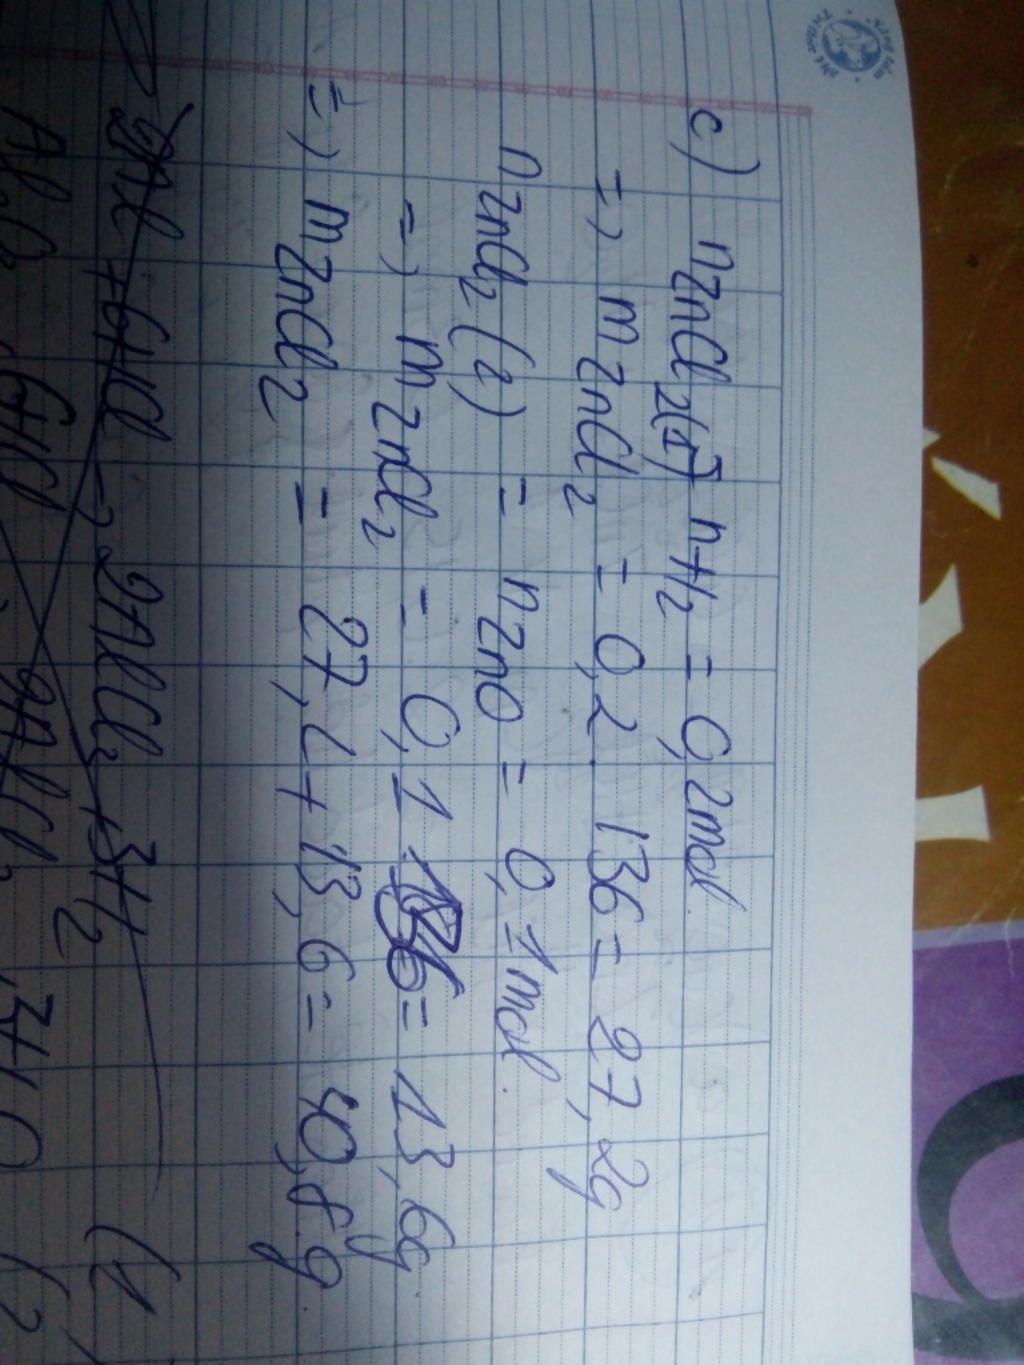 c) nZnCl2(1) = nH2 = 0,2mol.
=) mZnCl2 = 0,2. 136 = 27,2g
nZnCl2(2) = nZnO = 0,1mol.
=) mZnCl2 = 0,1 136 = 13,6g
=) mZnCl2 = 27,2 + 13,6 = 40,8g.
2Al + 6HCl → 2AlCl3 + 3H2 (1)